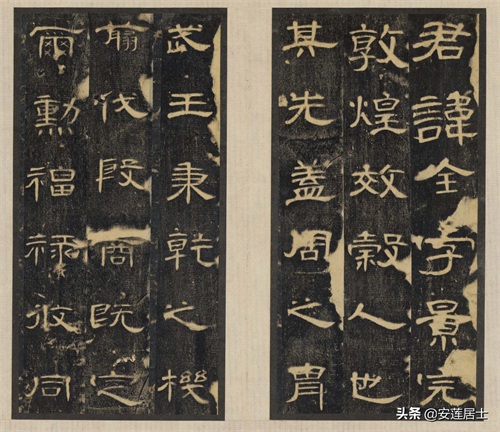 君諱全字景完
敦煌效穀人也
其先蓋周之胄
武王秉乾之機
翦伐殷商既定
爾勳福祿攸同
头条 @安莲居士